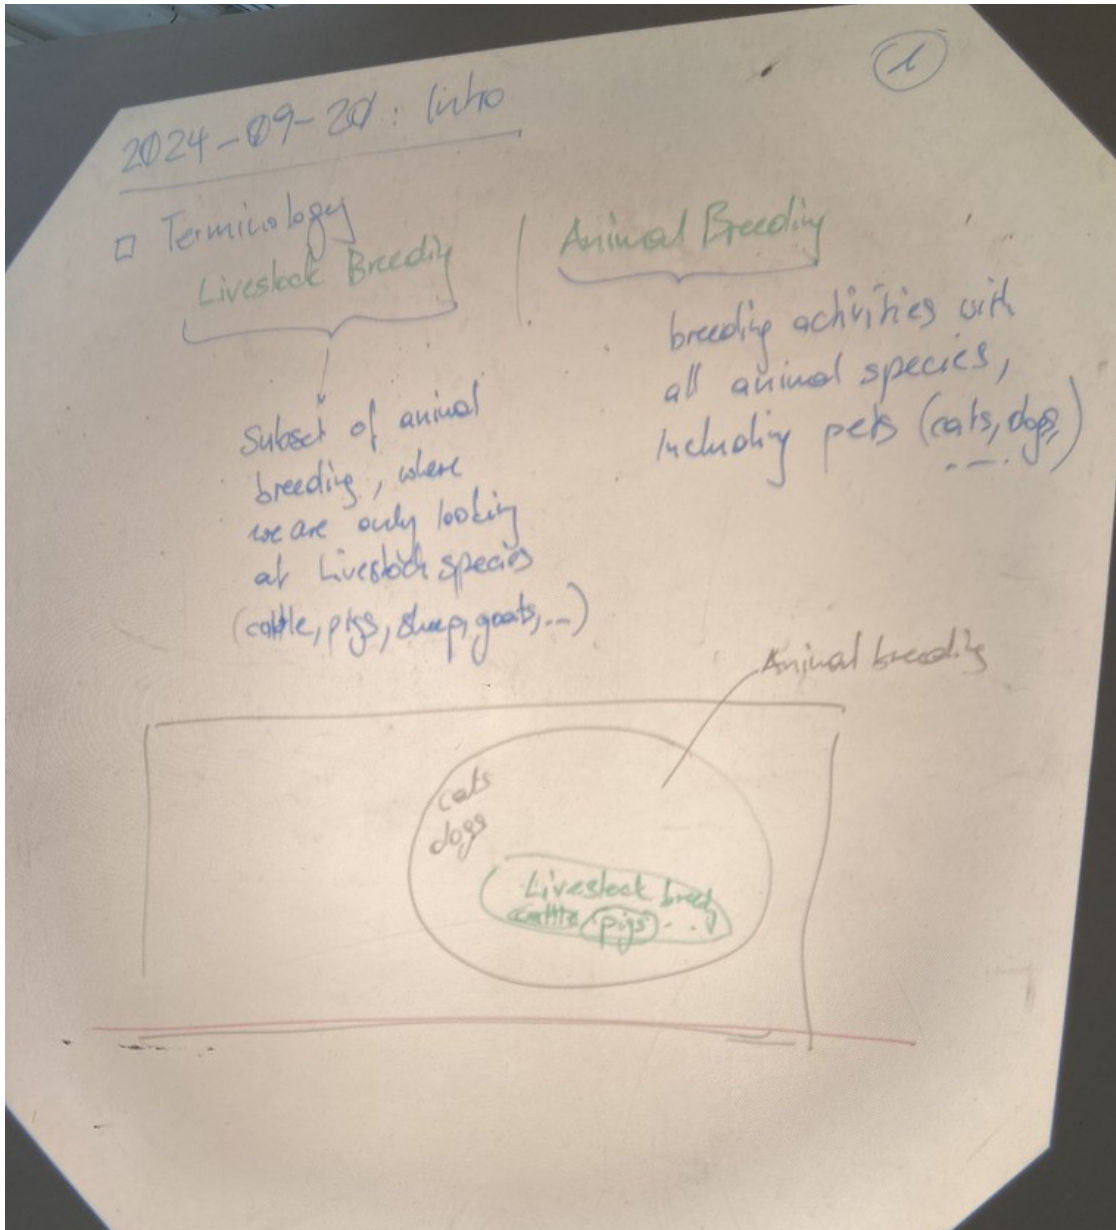 1
2024-09-20: Intro
□ Terminology
Livestock Breeding | Animal Breeding
Subset of animal
breeding, where
we are only looking
at Livestock species
(cattle, pigs, sheep, goats, ...)
breeding activities with
all animal species,
Including pets (cats, dogs,
...)
Animal breeding
cats
dogs
Livestock breedg
cattle pigs ...